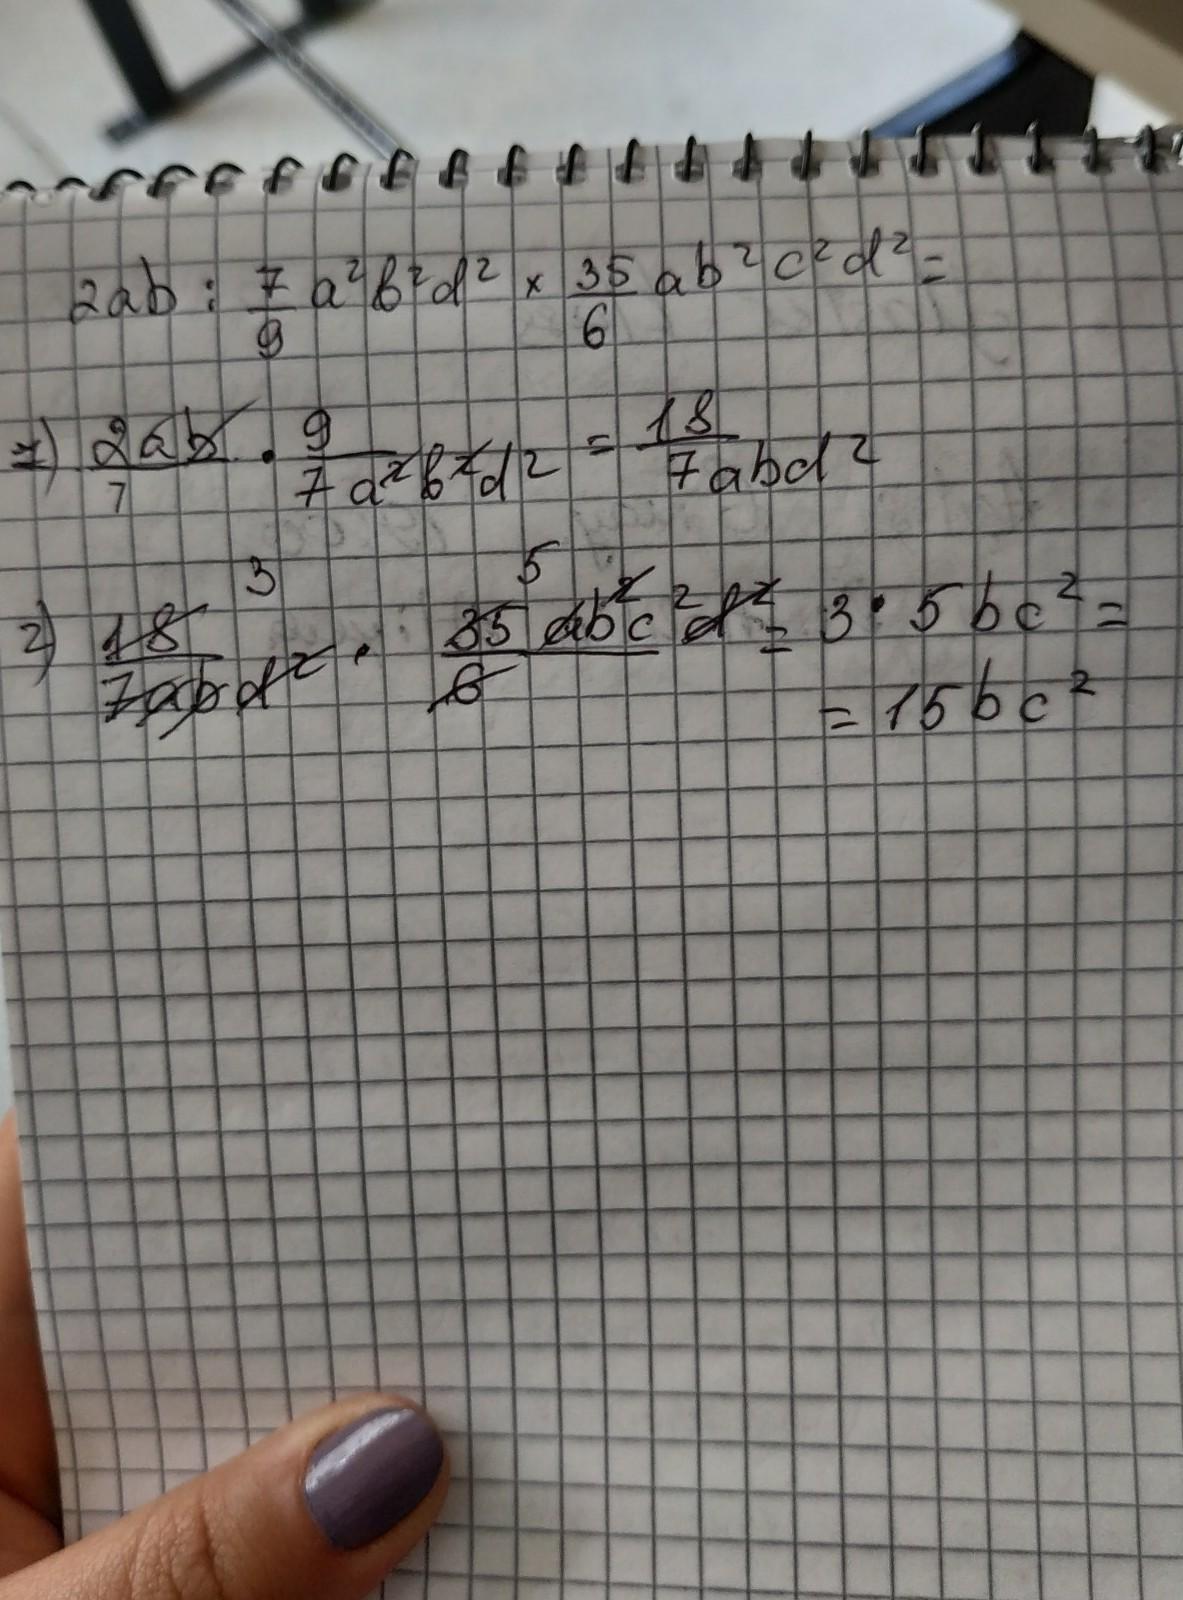 2ab : 7/9 a²b²d² × 35/6 ab²c²d² =
1) 2ab/1 · 9/7a²b²d² = 18/7abd²
3 5
2) 18/7abd² · 35ab²c²d²/6 = 3 · 5bc² =
= 15bc²